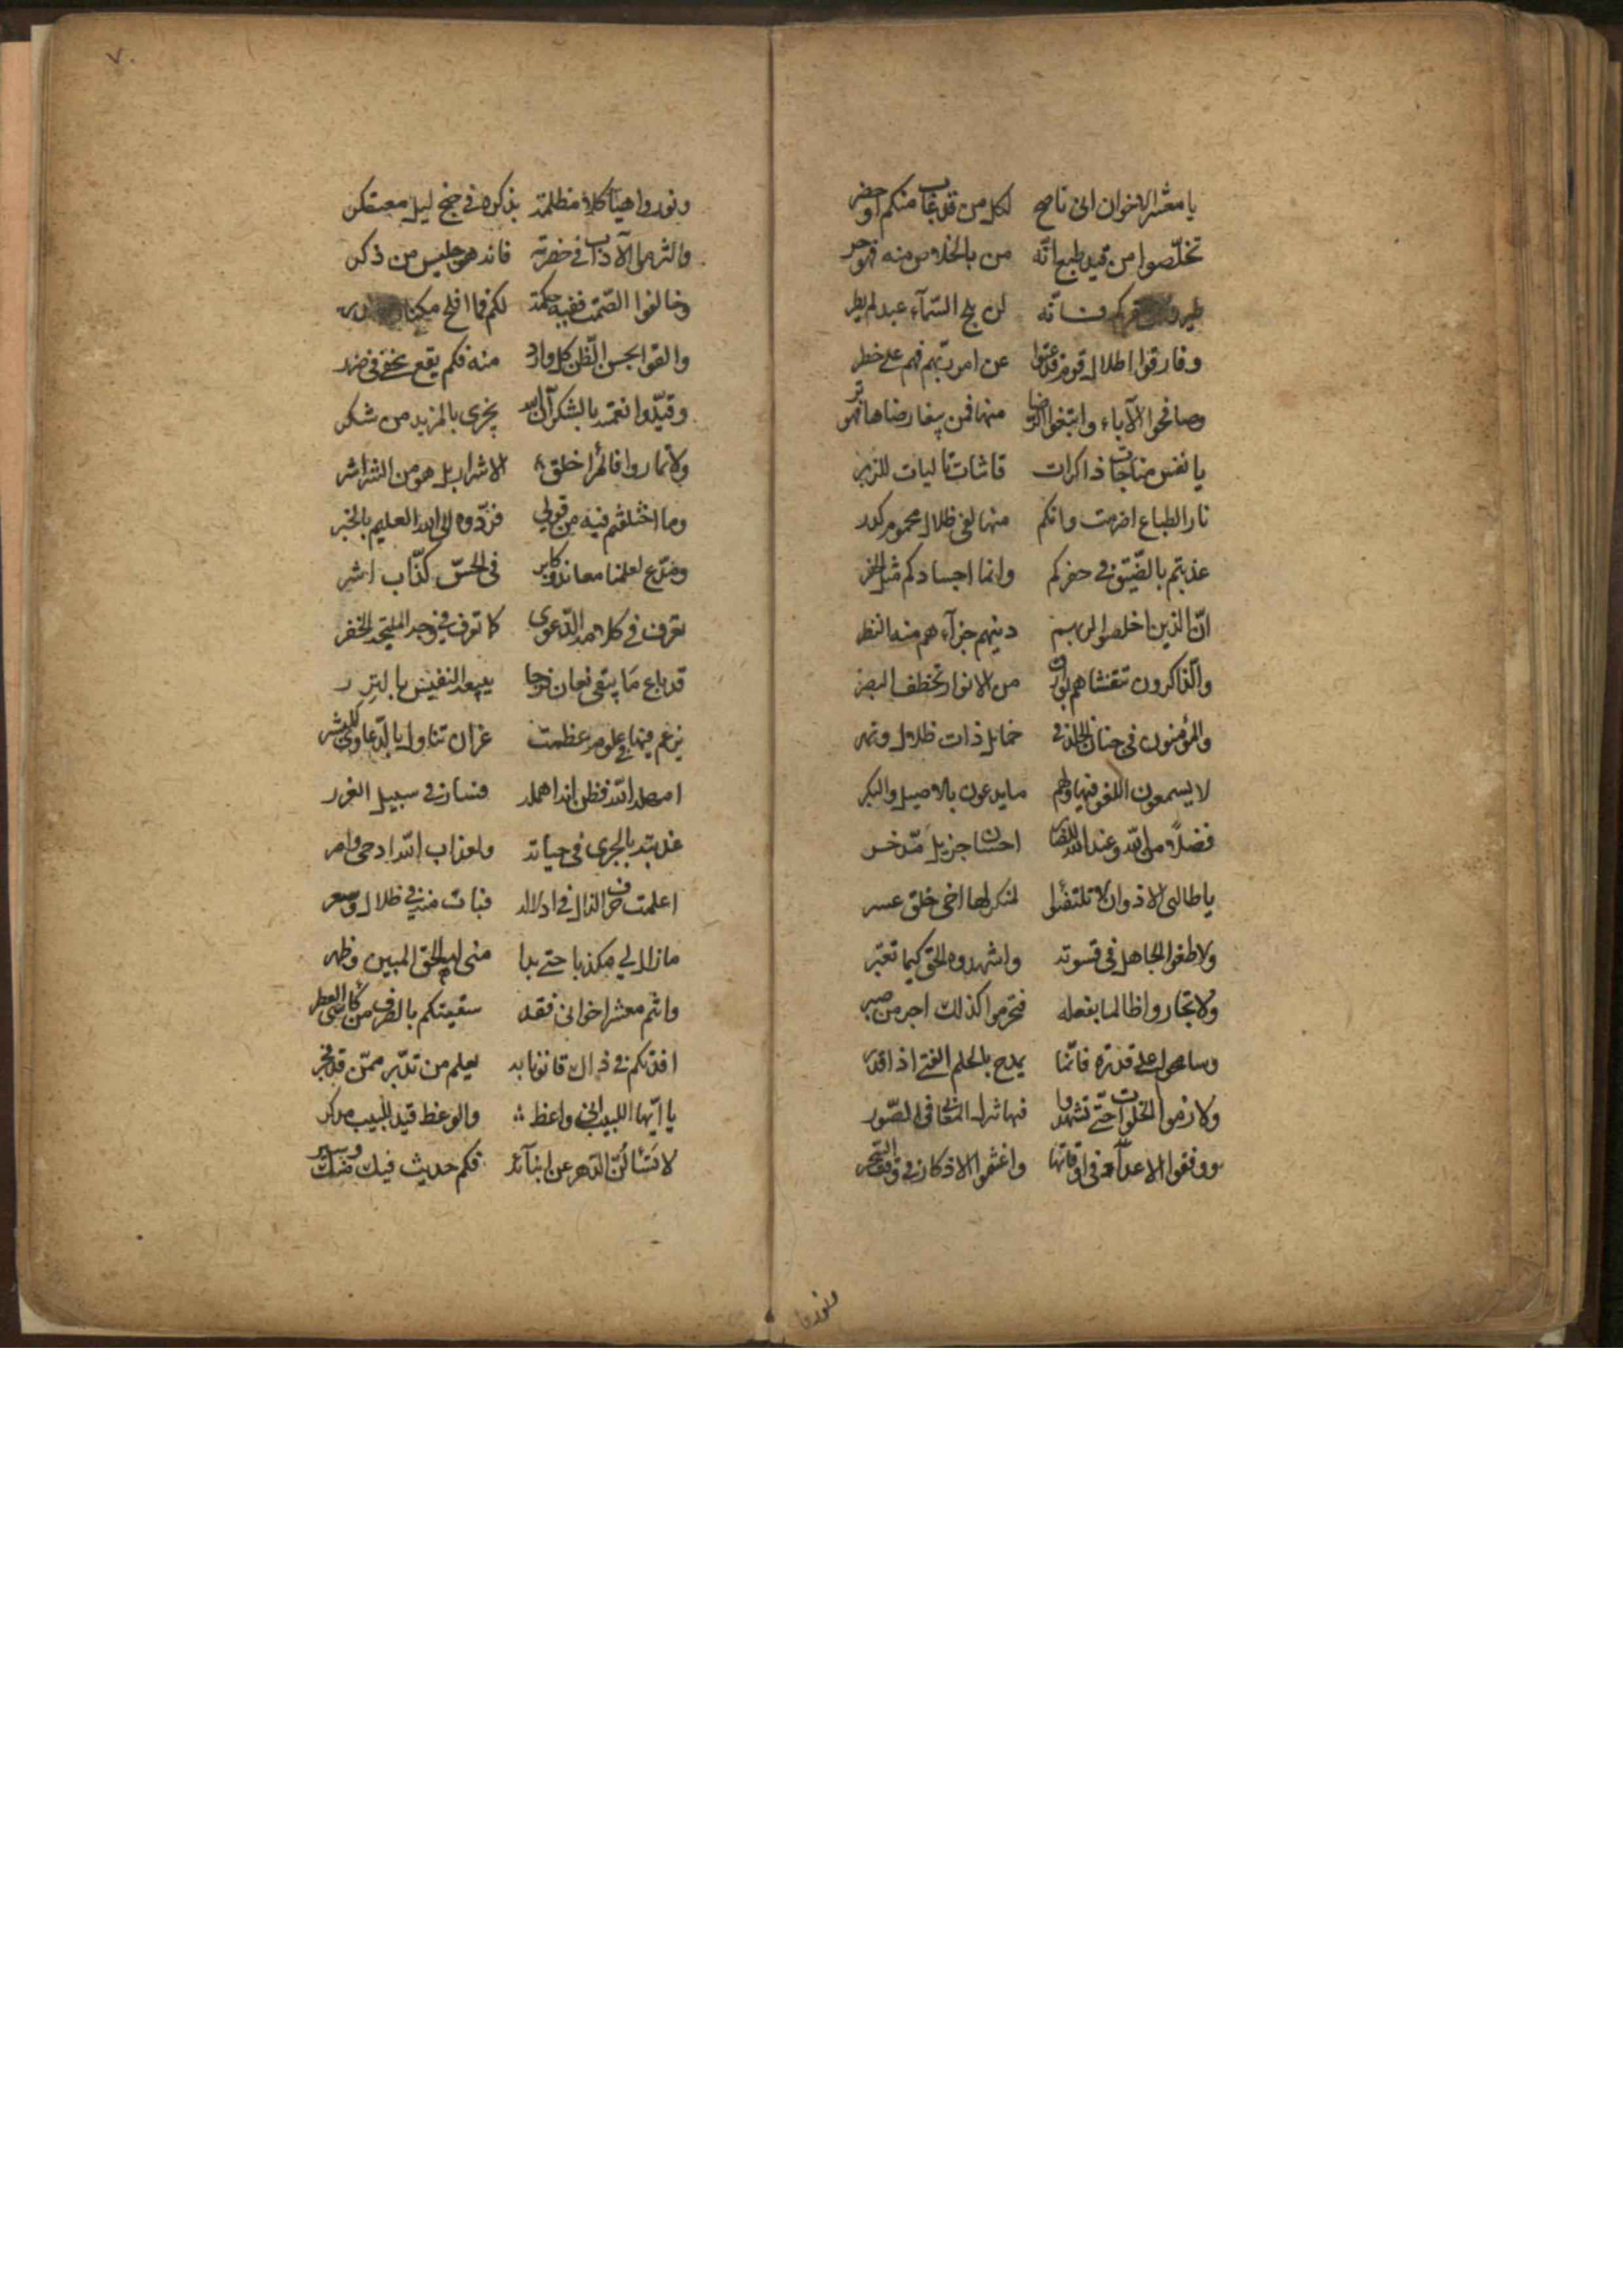 يا معشر الاخوان انى ناصح لكل من قد غاب منكم او حضر
تخلّصوا من قيد طبع انّه من بالخلاص منه فهو حر
لن يلج السّمآء عبد لم يطر
وفارقوا اطلال قوم قد عتوا عن امر ربّهم فهم على خطر
وصافحوا الآباء وابتغوا الرضا منها فمن رضاها فهو بر
يا نفس مناجات ذاكرات تاليات للزبر
نار الطباع اضرمت وانكم منها لفى ظلال محموم كدر
عذبتم بالضّيق فى حفركم وانما اجسادكم مثل الحفر
انّ الذين اخلصوا لربهم دينهم جزآءهم منه النظر
والذّاكرون تتغشاهم بوارق من الانوار تخطف البصر
والمؤمنون فى جنان الخلد فى خمايل ذات ظلال ونهر
لا يسمعون اللغو فيها ولهم ما يدعون بالاصيل والبكر
فضلاً من الله وعند الله للضيفان احسان جزيل مدّخر
يا طالبى الاذواق لا تلتفتوا لمنكر لها اخى خلق عسر
ولاطفوا الجاهل فى قسوته واشهدوه الحق كيما تعتبر
ولا تجاروا ظالما بفعله فتحرموا كذلك اجر من صبر
وسامحوا على قدرة فانّما يمدح بالحلم الفتى اذا قدر
ولازموا الخلوات حتّى تشهدوا فيها المعانى فى الصّور
ووفقوا الاعدآد فى اوقاتها واغتنموا الاذكار فى وقت السّحر
ونوروا هياكلا مظلمة بذكره فى جنح ليل معتكر
والتزموا الآداب فى حضرته فانه جليس من ذكر
وخالفوا الصّمت ففيه حكمة لكم فما افلح
والقوا بحسن الظّن كل وارد منه فكم يقع يخفى فى ضرر
وقيّدوا نعمته بالشكر ان الله يجزى بالمزيد من شكر
ولا تماروا فالمرا خلق الاشرار بل هو من الشر اشر
وما اختلفتم فيه من قولى فردّوه الى الله العليم بالخبر
ومدّع لعلمنا معاند وكابر فى الحسّ كذّاب اشر
تعرف فى كلامه الدّعوى كما تعرف فى وجه المليحة الخفر
قد باع ما يبقى بفان فرحا يبيعه النفيس بالنزر
يزعم فيها فى علوم عظمت عن ان تناول بالدّعاوى للبشر
امهله الله فظن انه اهمله فسار فى سبيل الغرر
عذبته بالجرى فى حياته ولعذاب الله ادهى وامر
اعلمت حرف الذال فى اذلاله فبات منه فى ظلال وسعر
ما زال لى مكذبا حتى بدا منى له الحق المبين وظهر
وانتم معشر اخوانى فقد سقيتكم بالصرف من كأسى العطر
افدتكم فى ذاك قانونا به يعلم من تدبّر ممّن قد فجر
يا ايّها اللبيب انى واعظ والوعظ قيد للبيب مدكر
لا تسألنّ الدهر عن ابنآئه فكم حديث فيك منك وسير
ونوروا
٧٠